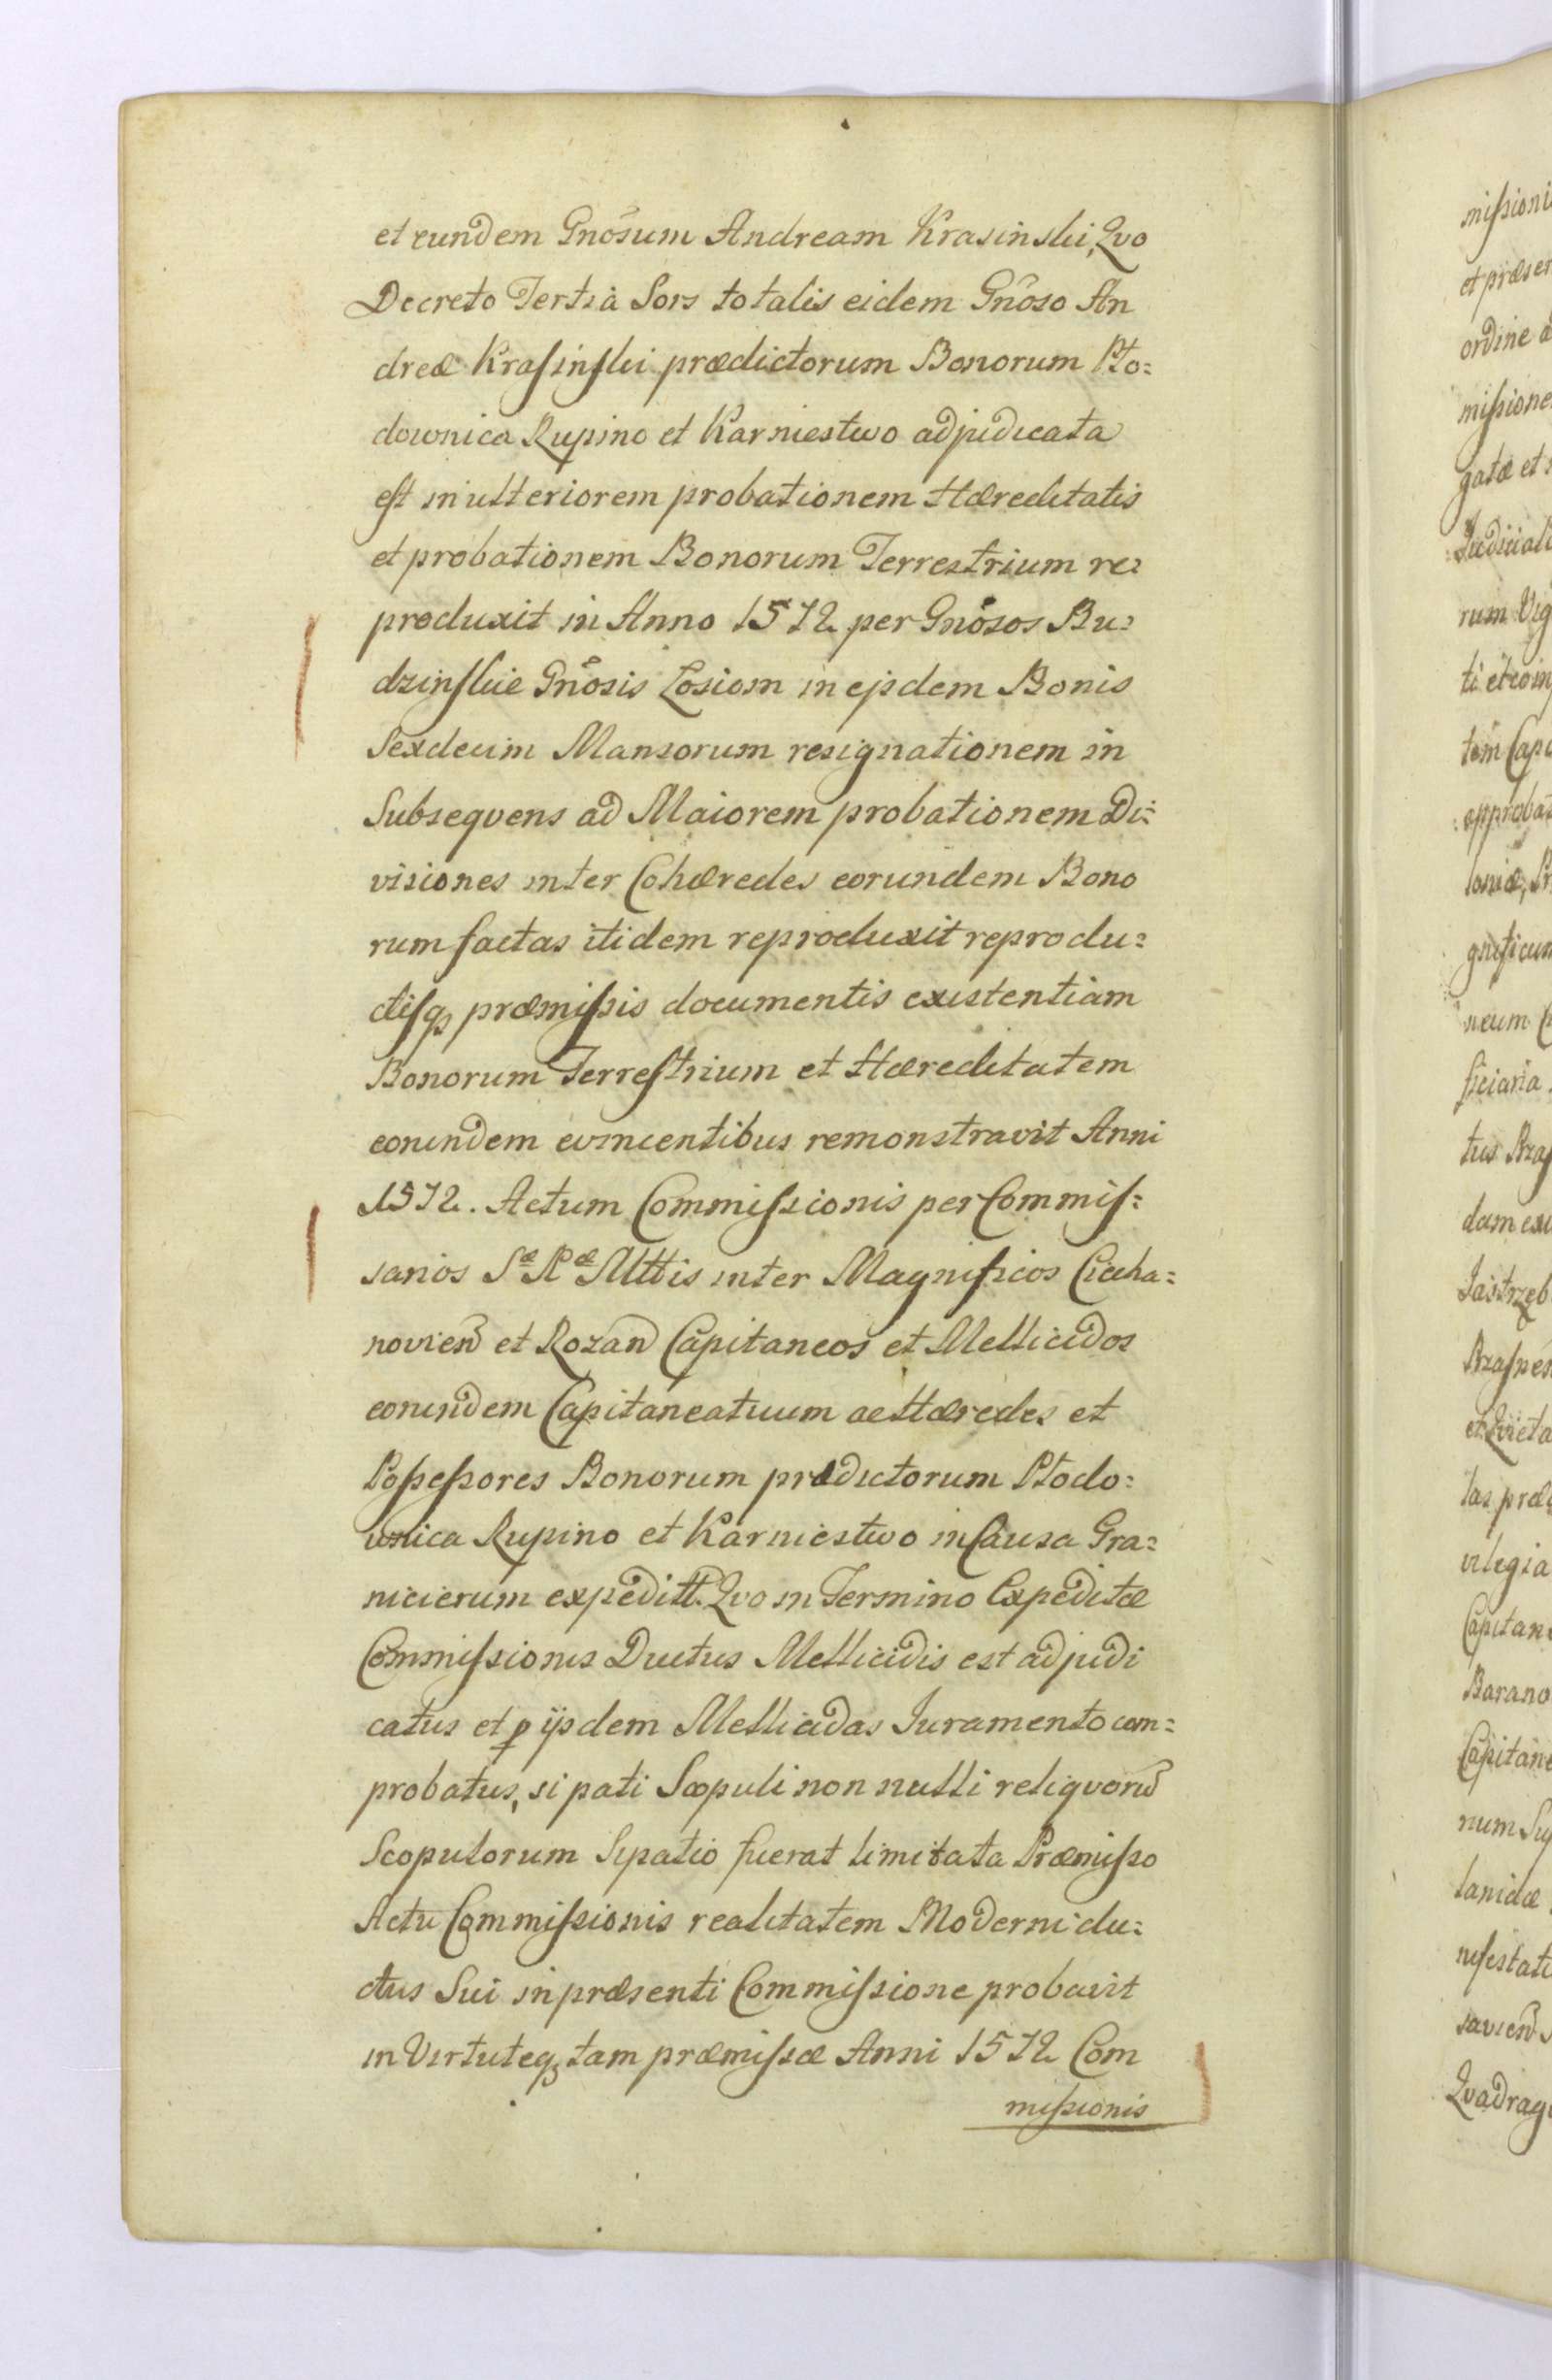 et eundem Gnõsum Andream Krasinski, Qvo
Decreto Tertia Sors totalis eidem Gnõso An
dreæ Krasinski prædictorum Bonorum Pło=
downica Rupino et Karniestwo adjudicata
est in ulteriorem probationem Hæreditatis
et probationem Bonorum Terrestrium re=
produxit in Anno 1572 per Gnõsos Bu=
dzinskie Gnõsis Łosiom in ejsdem Bonis
Sexdecim Mansorum resignationem in
Subseqvens ad Maiorem probationem Di=
visiones inter Cohæredes eorundem Bono
rum factas itidem reproduxit reprodu=
ctisq; præmissis documentis existentiam
Bonorum Terrestrium et Hæreditatem
eorundem evincentibus remonstravit Anni
1572. Actum Commissionis per Commis=
sarios Sæ Ræ Mttis inter Magnificos Ciecha=
novien et Rozan Capitaneos et Mellicidos
eorundem Capitaneatuum ac Hæredes et
Possessores Bonorum prædictorum Płodo=
wnica Rupino et Karniestwo in Causa Gra=
nicierum expeditt. Qvo in Termino Expeditæ
Commissionis Ductus Mellicidis est adjudi
catus et p ijsdem Mellicidas Juramento com=
probatus, si pati Scopuli non nulli reliqvorũ
Scopulorum Sipatio fuerat limitata Præmisso
Actu Commissionis realitatem Moderni du=
ctus Sui in præsenti Commissione probavit
in Virtuteq; tam præmissæ Anni 1572 Com
missionis
missioni
et præsen
ordine
missione
gatæ et
Judiciali
rum Vig
ti et coin
tom Cap
approbat
loniæ,
gnificum
neum
ficiaria
tus Kras
dam
Jastrzęb
et Qvieta
tas præ
vilegia
Capitan
Barano
Capitane
num Su
taniæ
nifestati
savien
Qvadrag